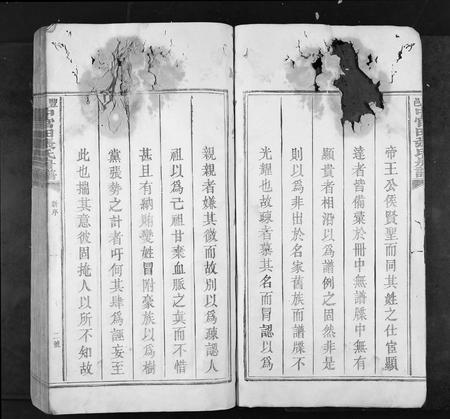 帝王公侯賢聖而同其姓之仕宦顯
達者皆備葉於冊中無譜牒中無有
顯貴者相沿以爲譜例之固然非是
則以爲非出於名家舊族而譜牒不
光耀也故疎者慕其名而冒認以爲
親親者嫌其微而故別以爲疎認人
祖以爲己祖甘棄血脈之眞而不惜
甚且有納賄變姓冒附豪族以爲樹
黨張勢之計者吁何其肆爲誣妄至
此也揣其意彼固掩人以所不知故
新序
二號